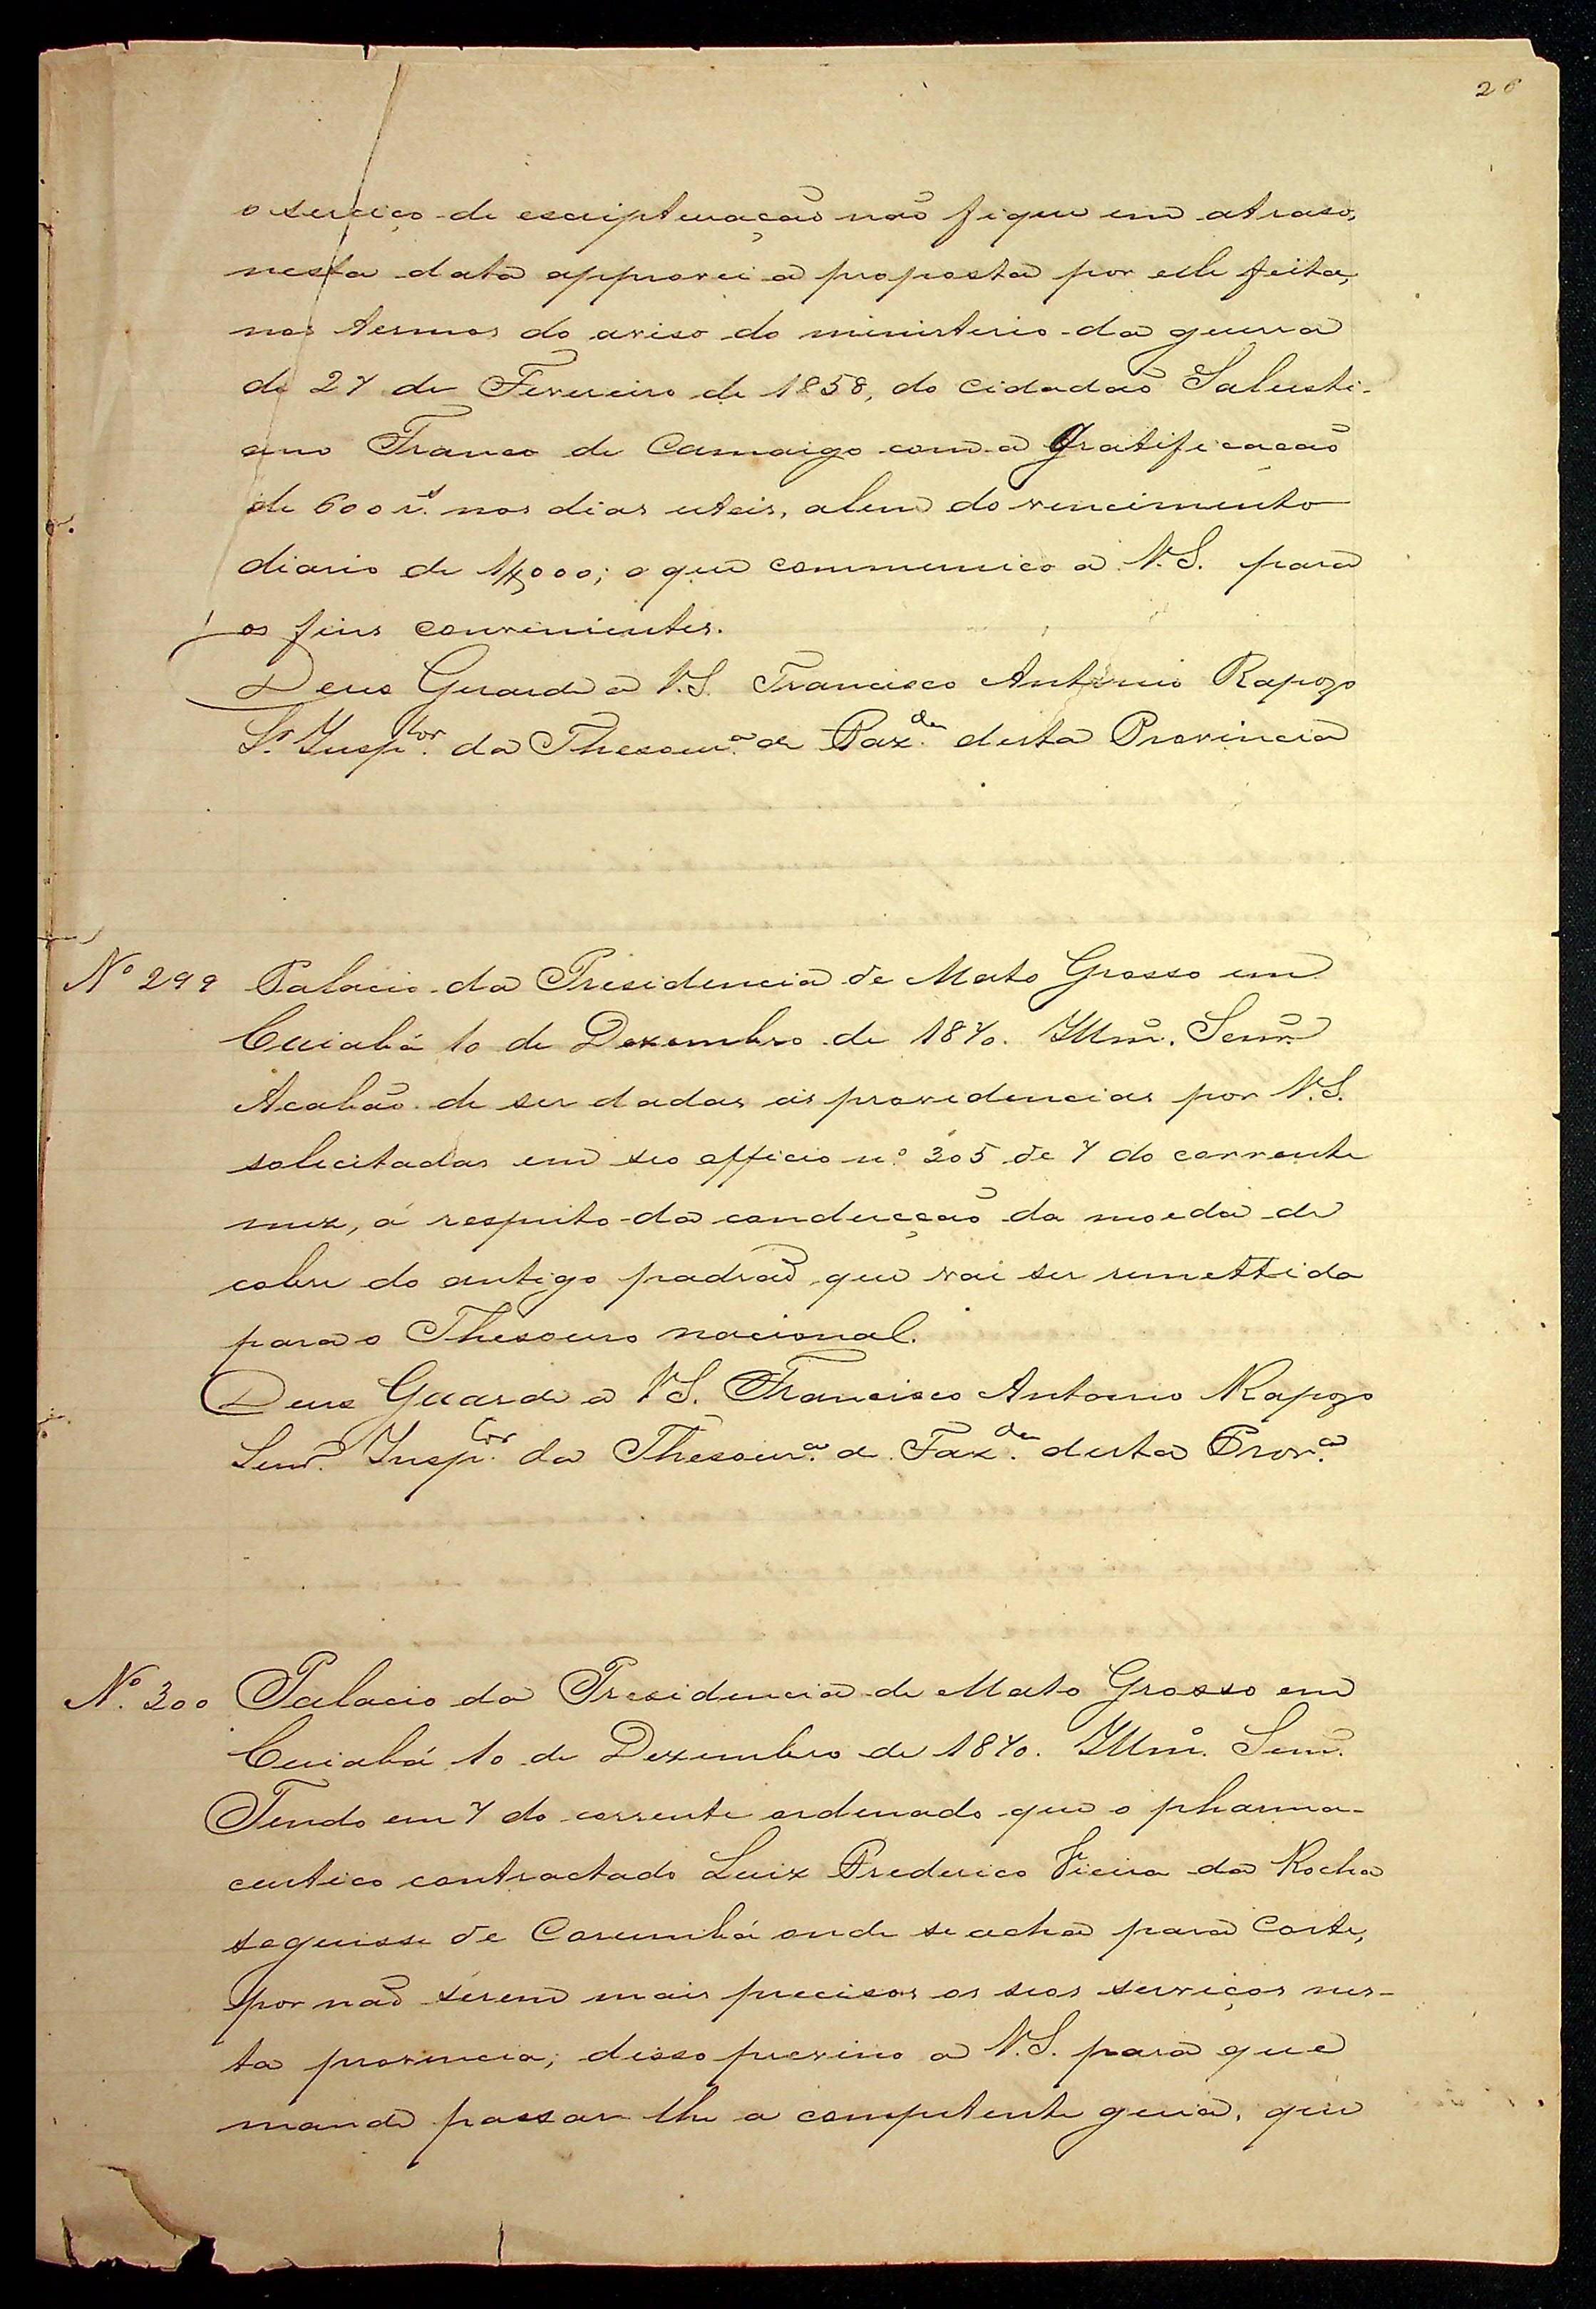 26
o serviço de escripturação não fique em atraso,
nesta data approvei a proposta por elle feita,
nos termos do aviso do ministerio da guerra
de 27 de Fevereiro de 1858, do cidadão Salusti-
ano Franco de Camargo com a gratificacão
de 600 rs. nos dias uteis, alem do vencimento
diario de 1$000; o que communico a V.S. para
os fins convenientes.
Deus Guarde a V.S. Francisco Antonio Rapozo
Sr. Insptor. da Thesoura. de Fazda. desta Provincia
Nº 299 Palacio da Presidencia de Mato Grosso em
Cuiabá 10 de Dezembro de 1870. Illmº. Senr.
Acabão de ser dadas as providencias por V.S.
solicitadas em seo officio nº 305 de 7 do corrente
mez, á respeito da conducção da moeda de
cobre do antigo padrão que vai ser remettida
para o Thesouro nacional.
Deus Guarde a V.S. Francisco Antonio Rapozo
Senr. Insptor. da Thesoura. de Fazda. desta Prova.
Nº. 300 Palacio da Presidencia de Mato Grosso em
Cuiabá 10 de Dezembro de 1870. Illmº. Senr.
Tendo em 7 do corrente ordenado que o pharma-
ceutico contractado Luiz Frederico Vieira da Rocha
seguisse de Corumbá onde se acha para Corte,
por não serem mais precisos os seos serviços nes-
ta provincia; disso previno a V.S. para que
mande passar lhe a competente guia, que